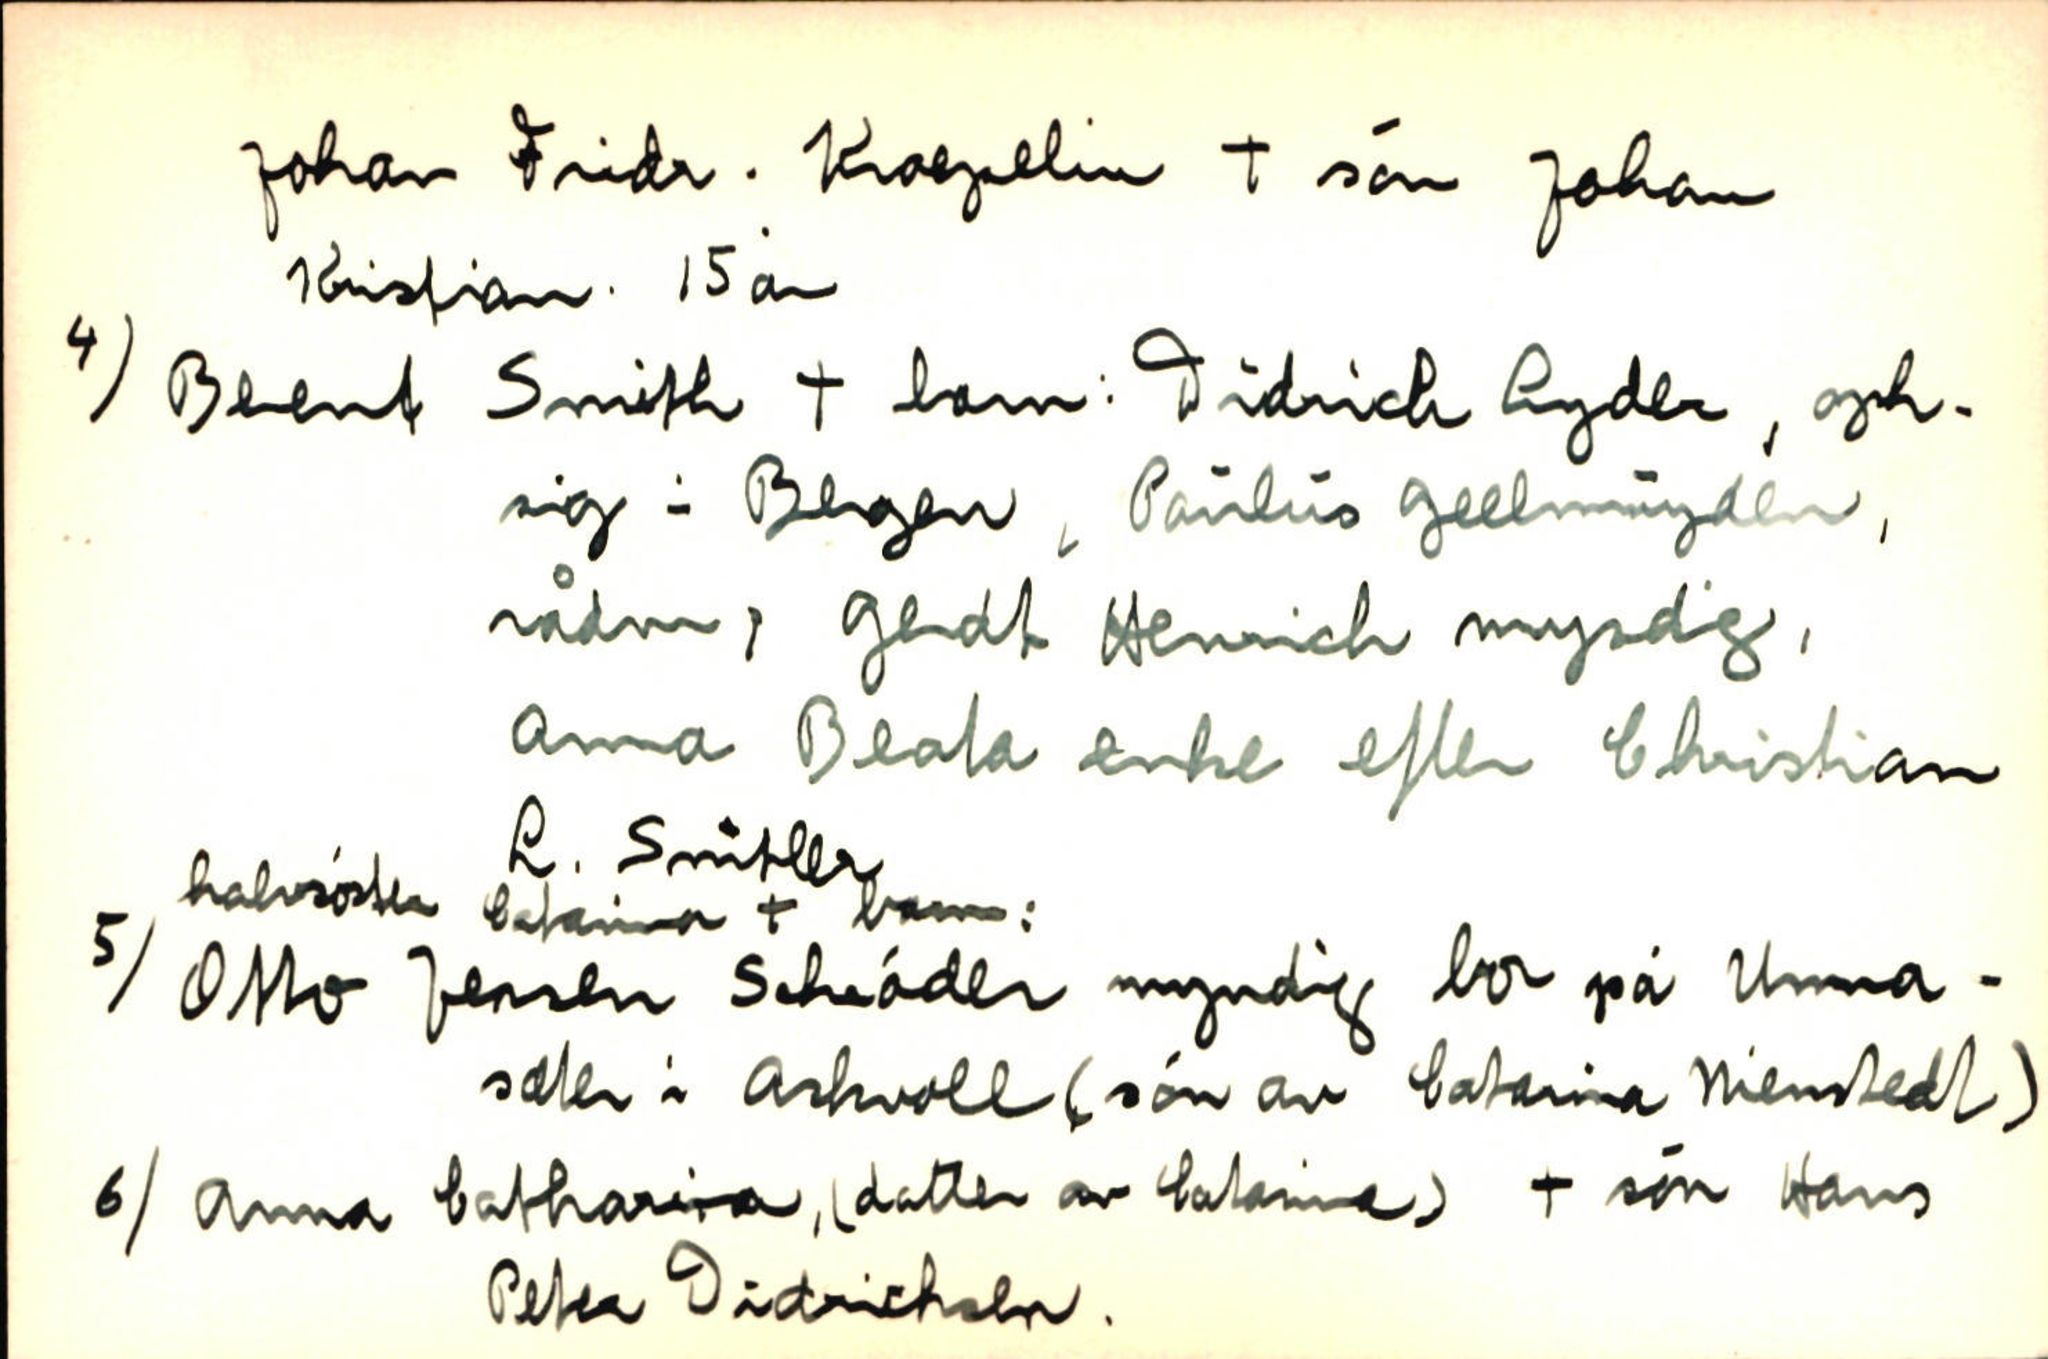 Johan Fridr. Kroepelin + sön Johan
Kristian. 15 år
4) Beent Smith + barn: Didrich Lyder, oph-
sig i Bergen, Paulus Geelmuyden,
rådm, Gerdt Henrich myndig,
Anna Beata enke efter Christian
L. Smith
halvsöster Catarina + barn:
5) Otto Jensen Schröder myndig bor på Unna-
sæter i Askvoll (sön av Catarina Nienstedt)
6) Anna Catharina, (datter av Catarina) + sön Hans
Peter Didrichsen.